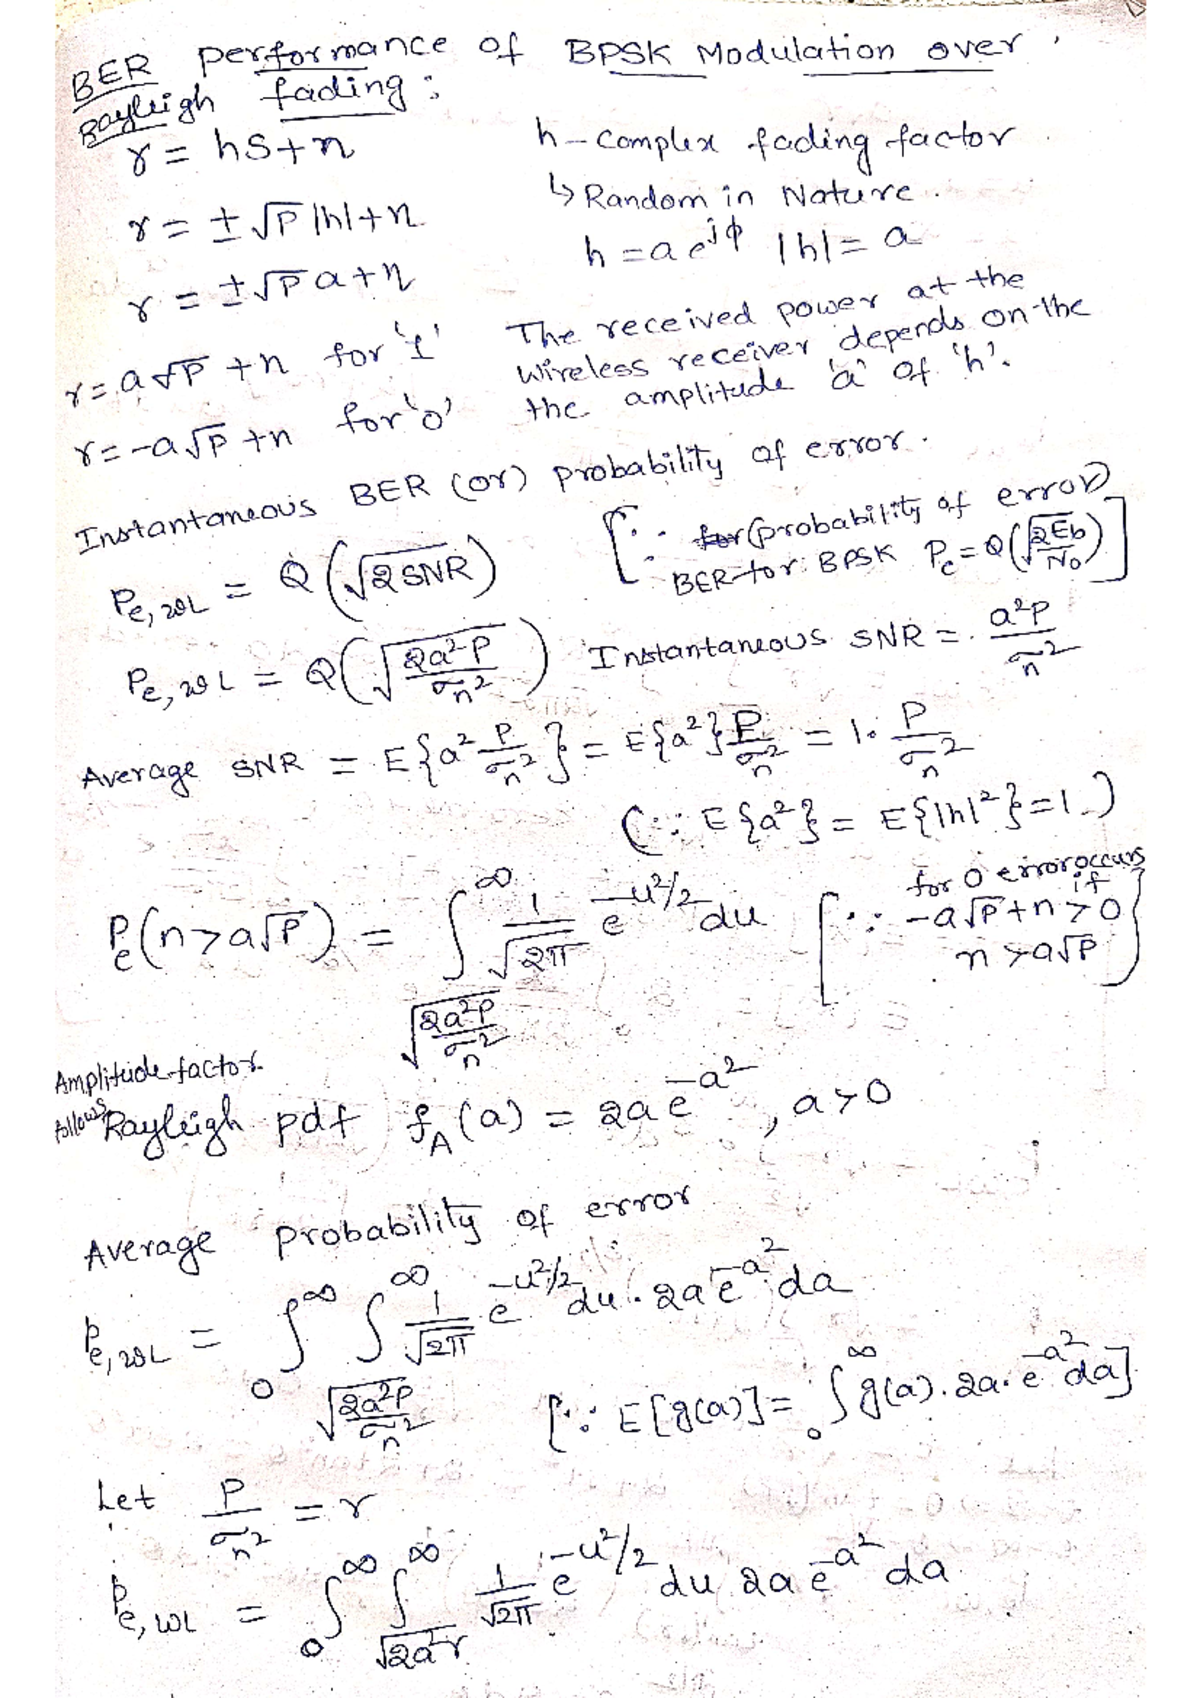 BER performance of BPSK Modulation over
Rayleigh fading:
r = hs+n
h - Complex fading factor
↳ Random in Nature.
r = ± √P |h| + n
h = a e^{jφ} |h| = a
r = ± √P a + n
The received power at the
wireless receiver depends on the
the amplitude 'a' of 'h'.
r = a √P + n for '1'
r = -a √P + n for '0'
Instantaneous BER (or) probability of error.
P_{e,WL} = Q(√(2 SNR))
[∵ (probability of error)
BER for BPSK P_e = Q(√(2Eb/No))]
P_{e,WL} = Q(√(2a²P/σ_n²)) Instantaneous SNR = a²P/σ_n²
Average SNR = E{a² P/σ_n²} = E{a²} P/σ_n² = 1. P/σ_n²
(∵ E{a²} = E{|h|²} = 1)
P_e(n > a√P) = ∫_{√(2a²P/σ_n²)}^{∞} 1/√2π e^{-u²/2} du
[∵ for 0 error occurs if
-a√P + n > 0
n > a√P]
Amplitude factor
follows Rayleigh pdf f_A(a) = 2a e^{-a²}, a > 0
Average probability of error
P_{e,WL} = ∫_0^∞ ∫_{√(2a²P/σ_n²)}^∞ 1/√2π e^{-u²/2} du . 2a e^{-a²} da
[∵ E[g(a)] = ∫_0^∞ g(a). 2a. e^{-a²} da]
Let P/σ_n² = r
P_{e,WL} = ∫_0^∞ ∫_{√(2a²r)}^∞ 1/√2π e^{-u²/2} du 2a e^{-a²} da